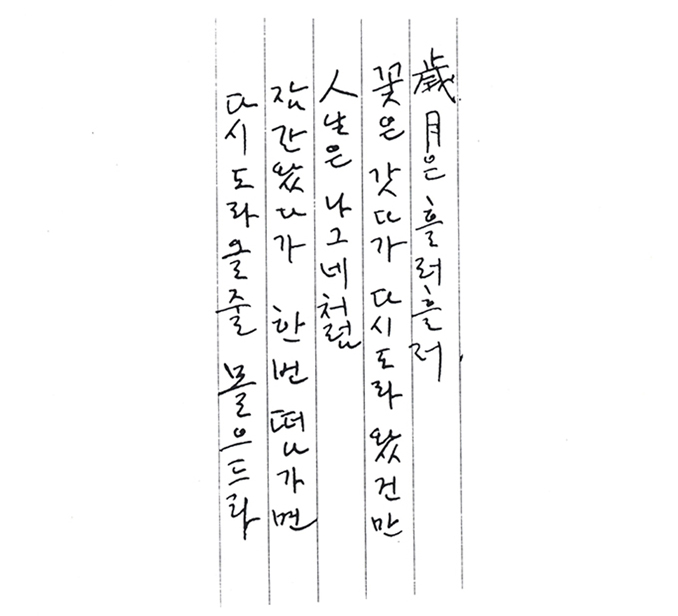 歲月은 흘러흘러
꽃은 갓다가 다시도라 왔건만
人生은 나그네처럼
잠간왔다가 한번 떠나가면
다시도라올줄 몰으드라